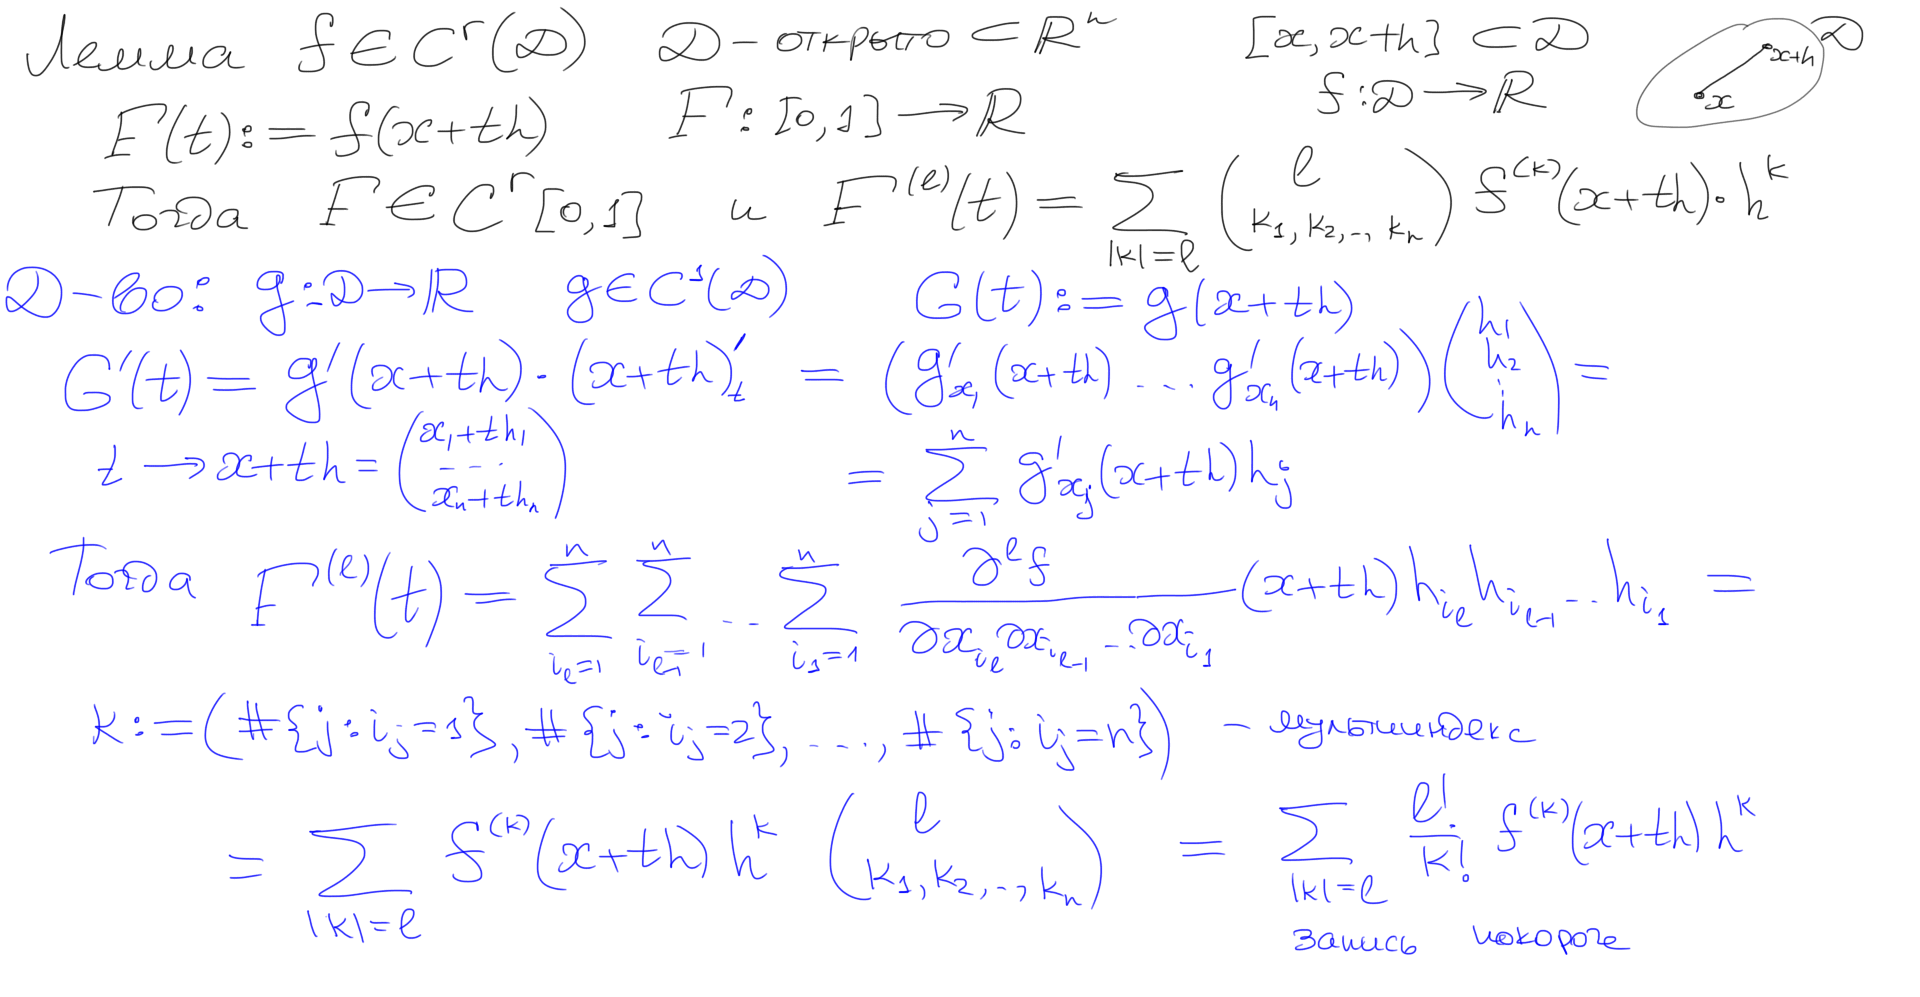 Лемма f ∈ C^r(D) D – открыто ⊂ ℝ^n [x, x+h] ⊂ D x x+h D
F(t) := f(x+th) F : [0,1] → ℝ f : D → ℝ
Тогда F ∈ C^r[0,1] и F^{(l)}(t) = ∑_{|k|=l} \binom{l}{k_1, k_2, .., k_n} f^{(k)}(x+th) · h^k
Д-во: g : D → ℝ g ∈ C^1(D) G(t) := g(x+th)
G'(t) = g'(x+th) · (x+th)'_t = (g'_{x_1}(x+th) ... g'_{x_n}(x+th)) (h_1 h_2 ⋮ h_n) =
t → x+th = (x_1+th_1 ... x_n+th_n) = ∑_{j=1}^{n} g'_{x_j}(x+th) h_j
Тогда F^{(l)}(t) = ∑_{i_l=1}^{n} ∑_{i_{l-1}=1}^{n} ... ∑_{i_1=1}^{n} \frac{∂^l f}{∂x_{i_l} ∂x_{i_{l-1}} ... ∂x_{i_1}} (x+th) h_{i_l} h_{i_{l-1}} ... h_{i_1} =
k := (#{j : i_j=1}, #{j : i_j=2}, ..., #{j : i_j=n}) – мультииндекс
= ∑_{|k|=l} f^{(k)}(x+th) h^k \binom{l}{k_1, k_2, .., k_n} = ∑_{|k|=l} \frac{l!}{k!} f^{(k)}(x+th) h^k
запись покороче